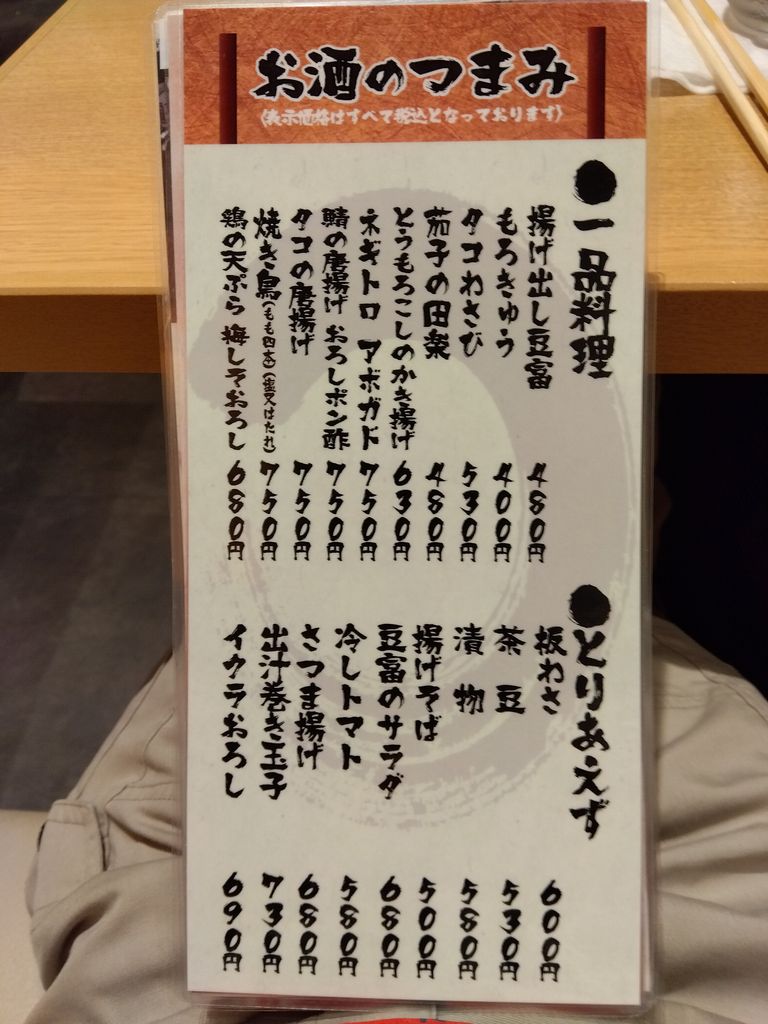 お酒のつまみ
(表示価格はすべて税込となっております)
●一品料理
揚げ出し豆富 480円
もろきゅう 400円
タコわさび 530円
茄子の田楽 480円
とうもろこしのかき揚げ 630円
ネギトロ アボガド 750円
鯖の唐揚げ おろしポン酢 750円
タコの唐揚げ 750円
焼き鳥(もも四本)(塩又はたれ) 750円
鶏の天ぷら 梅しそおろし 680円
●とりあえず
板わさ 600円
茶豆 530円
漬物 580円
揚げそば 500円
豆富のサラダ 680円
冷しトマト 580円
さつま揚げ 680円
出汁巻き玉子 730円
イクラおろし 690円